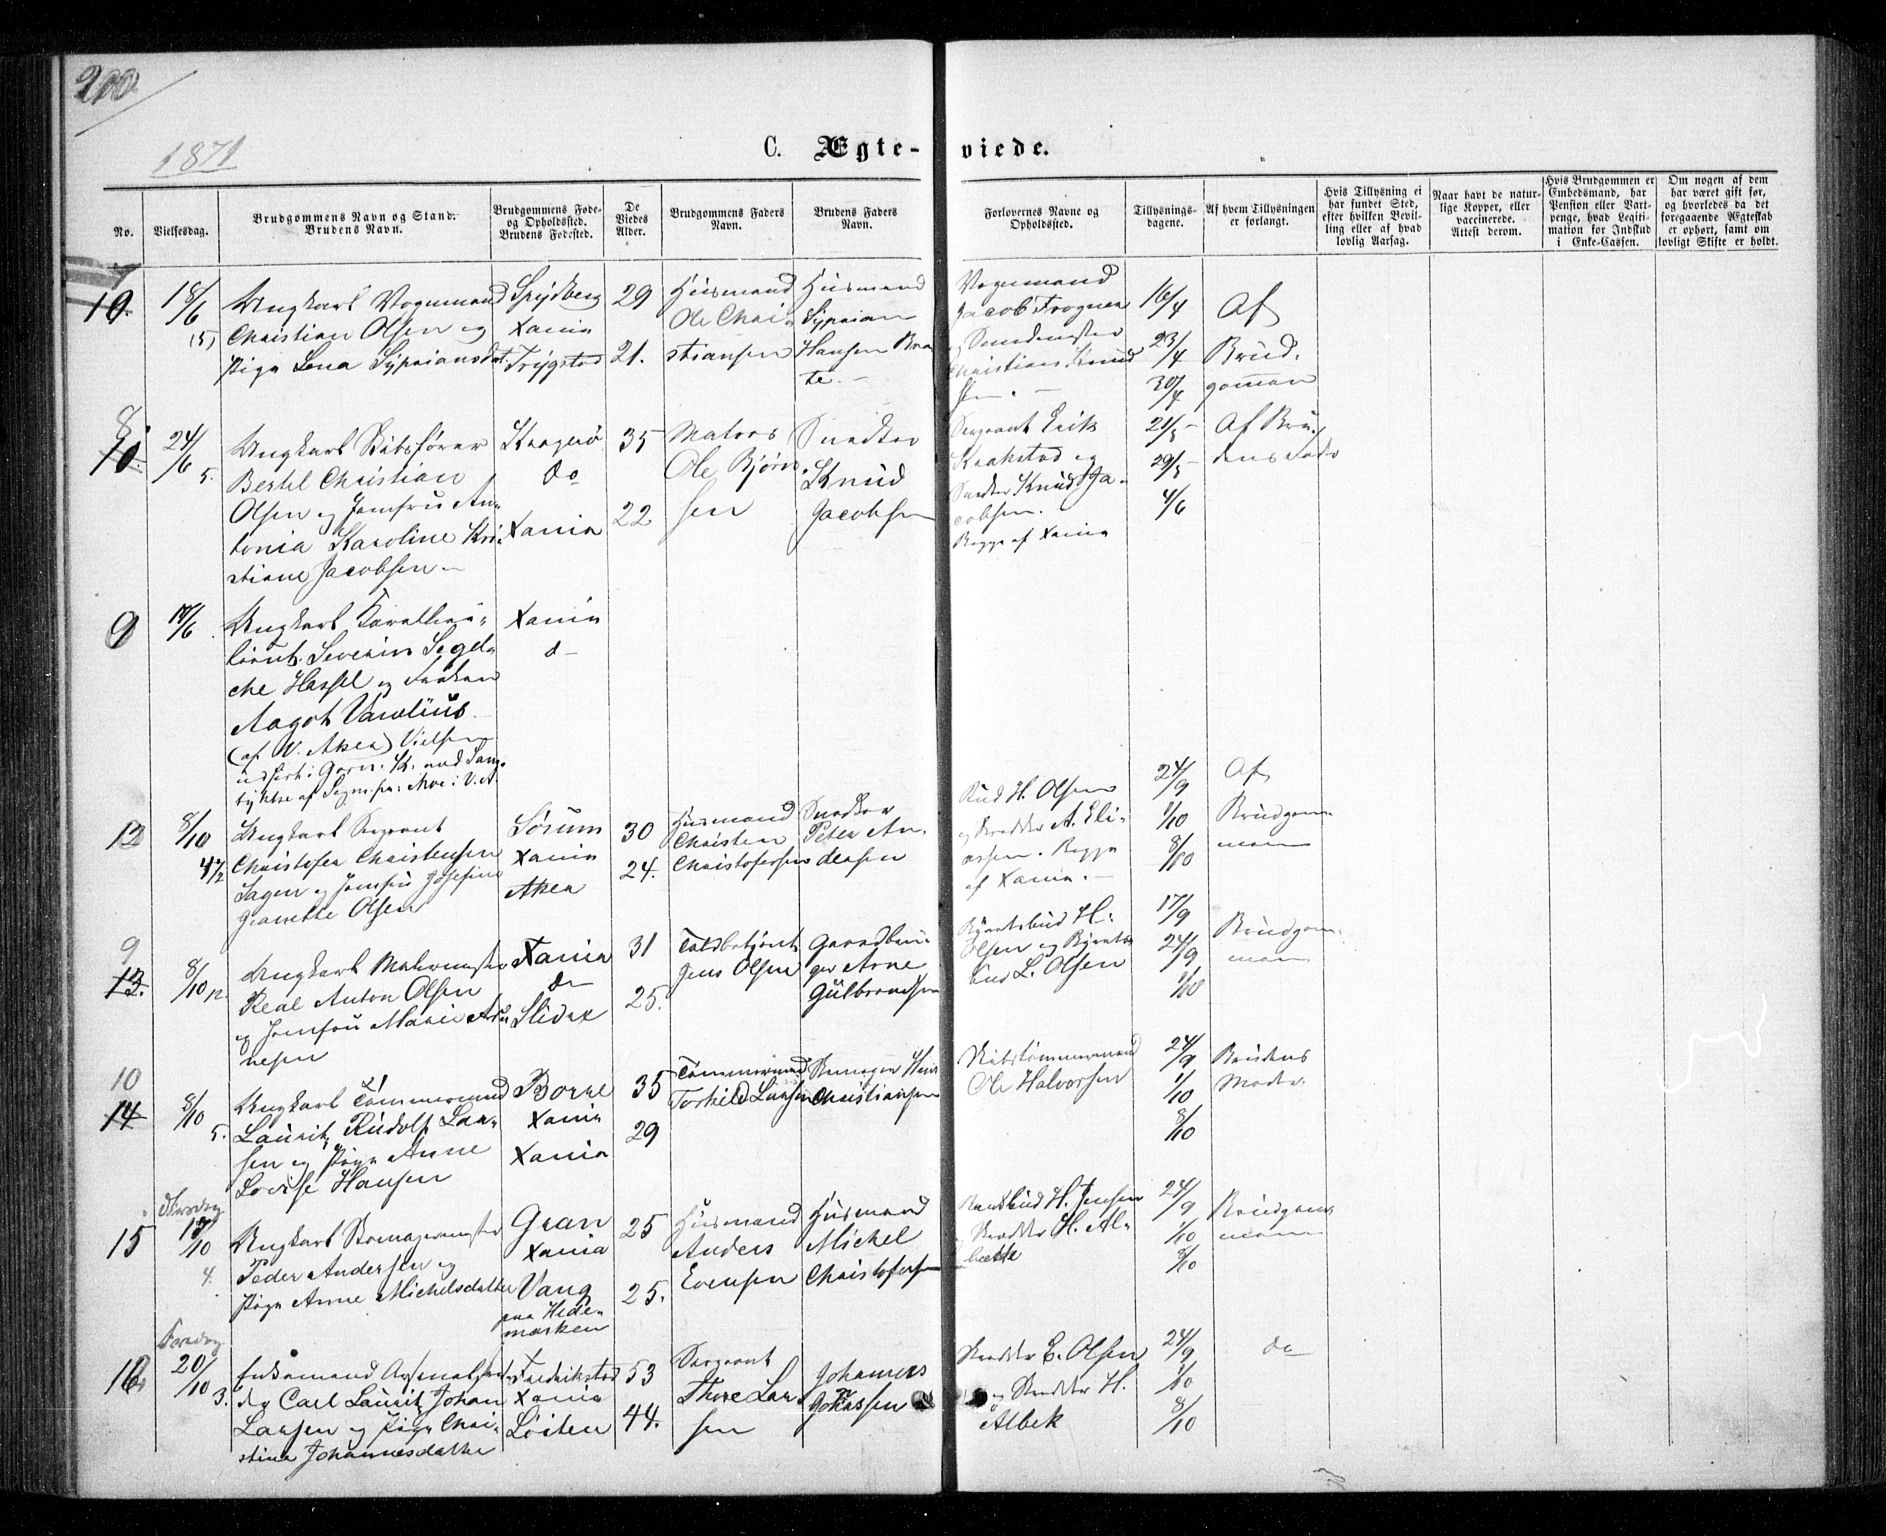 200
1871
C. Ægte-viede.
No.
Vielsesdag.
Brudgommens Navn og Stand.
Brudens Navn.
Brudgommens Føde-
og Opholdssted.
Brudens Fødested.
De
Viedes
Alder.
Brudgommens Faders
Navn.
Brudens Faders
Navn.
Forlovernes Navne og
Opholdssted.
Tillysnings-
dagene.
Af hvem Tillysningen
er forlangt.
Hvis Tillysning ei
har fundet Sted,
efter hvilken Bevil-
ling eller af hvad
lovlig Aarsag.
Naar havt de natur-
lige Kopper, eller
vaccinerede.
Attest derom.
Hvis Brudgommen er
Embedsmand, har
Pension eller Vart-
penge, hvad Legiti-
mation for Indskud
i Enke-Cassen.
Om nogen af dem
har været gift før,
og hvorledes da det
foregaaende Ægteskab
er ophørt, samt om
lovligt Skifte er holdt.
7
10.
18/6
(5)
Ungkarl Vognmand
Christian Olsen og
Pige Lena Sypriansdat.
Spydberg
Xania
Trygstad
29
21.
Husmand
Ole Chri-
stiansen
Husmand
Syprian
Hansen Bra-
te.
Vognmand
Jacob Frogner
Christian Knud
sen.
16/4
23/4
30/4
Af
Brud-
gommen
8
10.
24/6
5.
Ungkarl Skibsfører
Bertel Christian
Olsen og Jomfru An-
tonia Karoline Kri-
stiane Jacobsen
Kragerø
do
Xania
35
22
Matros
Ole Bjørn-
sen
Snedker
Knud
Jacobsen
Sergeant Erik
Kraakstad og
Snedker Knud Ja-
cobsen.
Begge af Xania
21/5
29/5
4/6
Af Bru-
dens Fader
9
17/6
Ungkarl Kavalleri-
løjtnt. Severin Segel-
cke Hassel og Frøken
Aagot Vandiius
(af V. Aker) Vielsen
udført i Garn. K. med Sam-
tykke af Sognepr. Moe i V. A.
Xania
d
12
8/10
4 1/2
Ungkarl Sergeant
Christofer Christensen
Sagen og Jomfru Josefine
Jeanette Olsen
Sørum
Xania
Aker
30
24.
Husmand
Christen
Christofersen
Snedker
Peter An-
dersen
Bud H. Olsen
og Skredder A. Eli-
assen. Begge
af Xania.
24/9
1/10
8/10
Af
Brudgom-
men
9
13.
8/10
Ungkarl Malermester
Real Anton Olsen
og Jomfru Marie Ar-
nesen
Xania
do
Slidre
31
25.
Toldbetjent
Jens Olsen
Gaardbru-
ger Arne
Gulbrandsen
Byretsbud H.
Olsen og Byrets-
bud L. Olsen
17/9
24/9
1/10
Brudgom-
men
10
14
8/10
5.
Ungkarl Tømmermand
Lauritz Rudolf Lar-
sen og Pige Anne
Lovise Hansen
Borre
Xania
Xania
35
29
Tømmermand
Torkild Larsen
Christiansen
Skibstømmermand
Ole Halvorsen
24/9
1/10
8/10
Brudens
Moder
15
4.
Ungkarl Skomagermester
Peder Andersen og
Pige Anne Michelsdatter
Gran
Xania
Vang
paa Hede-
marken
25
25.
Husmand
Anders
Evensen
Husmand
Michel
Christofersen
H. Jensen
Skredder H. Al-
24/9
1/10
8/10
Brudgom-
men
16
20/10
3.
Enkemand
Carl Lauritz Johan
Larsen og Pige Chri-
stine Johannesdatter
Fredrikstad
Xania
Løiten
53
44.
Sergeant
Thore Lar-
sen
Johannes
Skredder E. Olsen
og Skredder H.
Albek
24/9
1/10
8/10
do